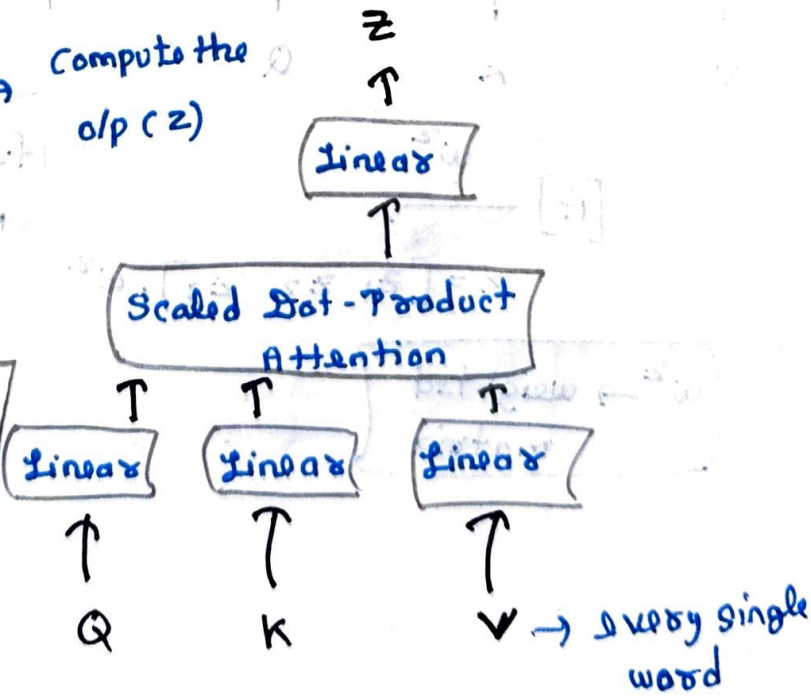 Compute the
o/p (z)
Z
Linear
Scaled Dot-Product
Attention
Linear Linear Linear
Q K V → every single
word